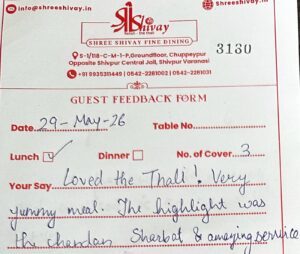 info@shreeshivay.in
@shreeshivay.in
Shivay
SHREE SHIVAY FINE DINING
3130
S-1/58-C-M-1-F,Groundfloor, Chuppeypur
Opposite Shivpur Central Jail, Shivpur Varanasi
+91 9935311449 | 0542-2281002 | 0542-2281031
GUEST FEEDBACK FORM
Date. 29-May-26 Table No.
Lunch Dinner No. of Cover. 3
Your Say Loved the Thali! Very
yummy meal. The highlight was
the chandan Sharbat & amazing service